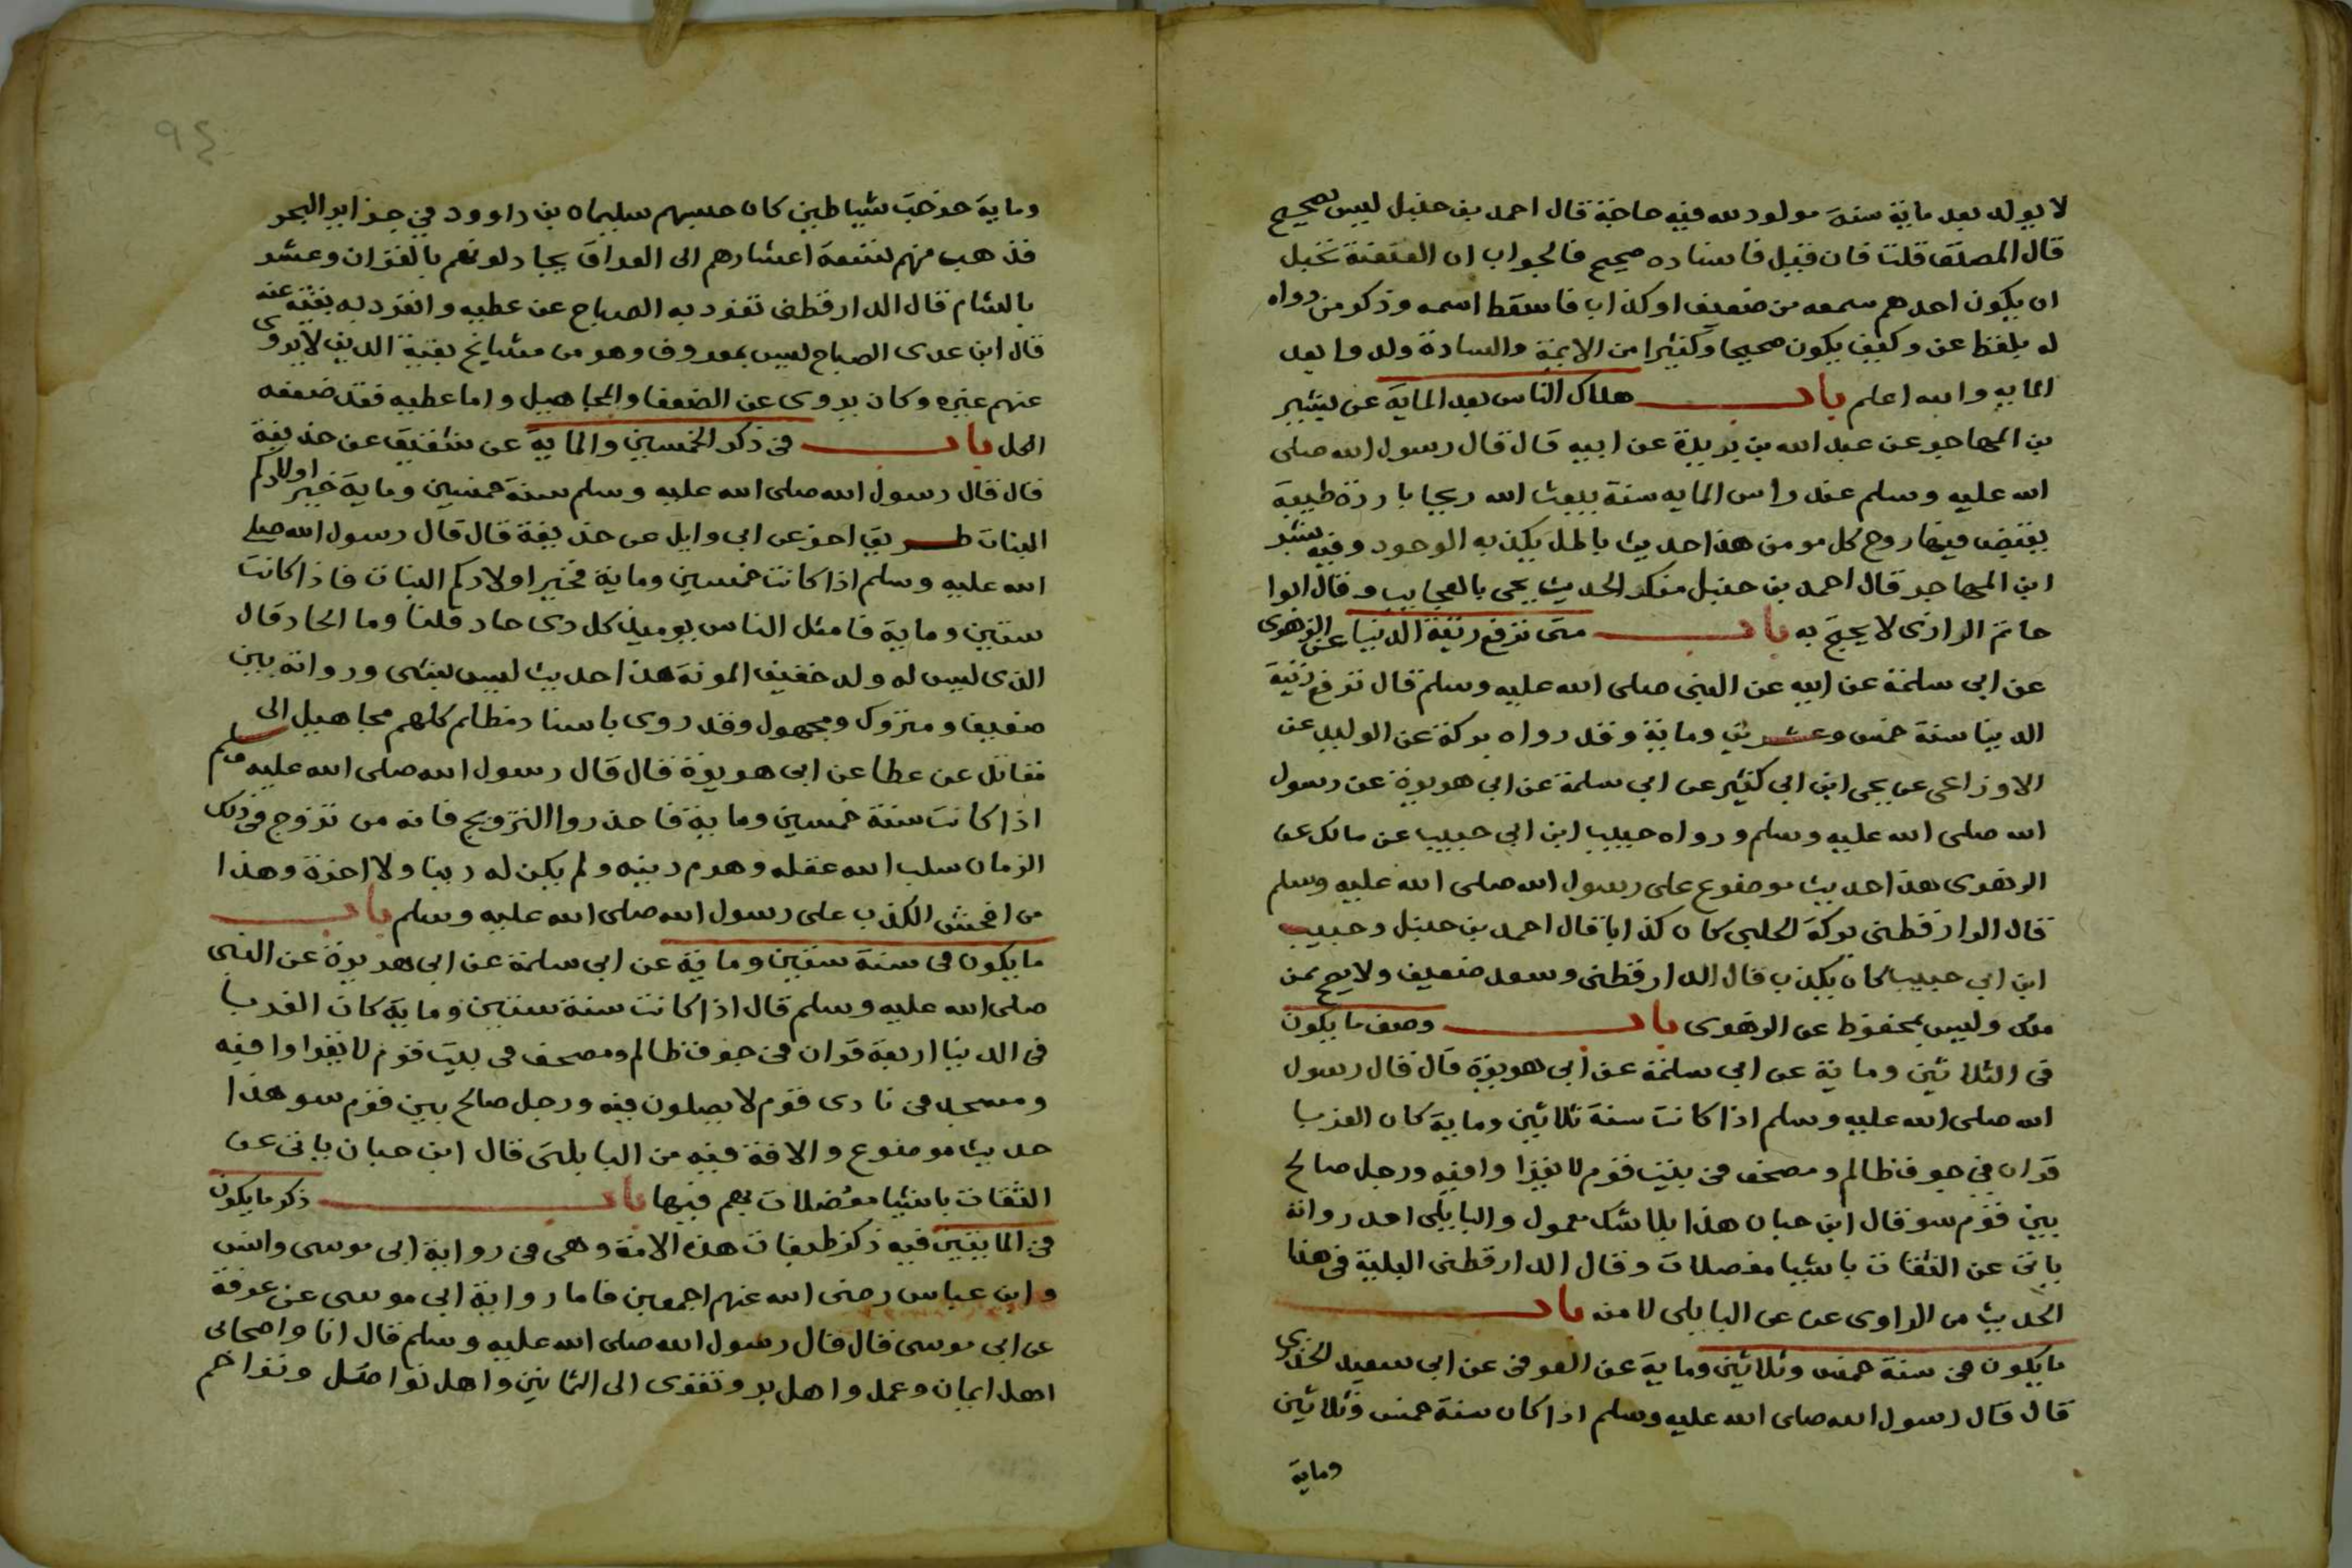 لا يولد بعد ماية سنة مولود لله فيه حاجة قال احمد بن حنبل ليس بصحيح
قال المصنف قلت فان قيل فاسناده صحيح فالجواب ان العنعنة تحيل
ان يكون احدهم سمعه من ضعيف او كذاب فاسقط اسمه وذكر من رواه
له بلفظ عن وكيف يكون صحيحا وكثيرا من الايمة والسادة ولدوا بعد
المايه والله اعلم باب هلاك الناس بعد الماية عن بشير
بن المهاجر عن عبد الله بن بريدة عن ابيه قال قال رسول الله صلى
الله عليه وسلم عند راس المايه سنة يبعث الله ريحا باردة طيبة
يقبض فيها روح كل مومن هذا حديث باطل يكذبه الوجود وفيه بشر
ابن المهاجر قال احمد بن حنبل منكر الحديث يجى بالعجايب وقال ابوا
حاتم الرازى لا يحتج به باب متى ترفع زينة الدنيا عن الزهرى
عن ابى سلمة عن ابيه عن النبى صلى الله عليه وسلم قال ترفع زينة
الدنيا سنة خمس وعشرين وماية وقد رواه بركة عن الوليد عن
الاوزاعى عن يحى ابن ابي كثير عن ابي سلمة عن ابي هريرة عن رسول
الله صلى الله عليه وسلم ورواه حبيب ابن ابي حبيب عن مالك عن
الزهرى هذا حديث موضوع على رسول الله صلى الله عليه وسلم
قال الدارقطنى بركة الحلبى كان كذابا قال احمد بن حنبل وحبيب
ابن ابي حبيب كان يكذب قال الدارقطنى وسعد ضعيف ولا يصح عن
ملك وليس بمحفوظ عن الزهرى باب وصف ما يكون
فى الثلاثين وماية عن ابي سلمة عن ابى هريرة قال قال رسول
الله صلى الله عليه وسلم اذا كانت سنة ثلاثين وماية كان الغربا
قران في جوف ظالم ومصحف فى بيت قوم لا يقرا وا فيه ورجل صالح
بين قوم سو قال ابن حبان هذا بلا شك معمول والبابلى احد رواته
ياتى عن الثقات باشيا معضلات وقال الدارقطنى البلية فى هذا
الحديث من الراوى عن عن البابلى لا منه باب
ما يكون فى سنة خمس وثلاثين وماية عن العوفى عن ابى سعيد الخدرى
قال قال رسول الله صلى الله عليه وسلم اذا كان سنة خمس وثلاثين
وماية
٩٤
وماية خرجت شياطين كان حبسهم سليمان بن داوود في جزاير البحر
فذهب منهم تسعة اعشارهم الى العراق يجادلونهم بالقران وعشر
بالشام قال الدارقطنى تفرد به الصباح عن عطيه وانفرد به بقية عنه
قال ابن عدى الصباح ليس بمعروف وهو من مشايخ بقية الذين لا يروى
عنهم غيره وكان يروى عن الضعفا والمجاهيل واما عطيه فقد ضعفه
الكل باب فى ذكر الخمسين والماية عن شقيق عن حذيفة
قال قال رسول الله صلى الله عليه وسلم سنة خمسين وماية خير اولادكم
البنات طريق اخر عن ابى وايل عن حذيفة قال قال رسول الله صلى
الله عليه وسلم اذا كانت خمسين وماية فخير اولادكم البنات فاذا كانت
ستين وماية فامثل الناس يوميذ كل ذى حاد قلنا وما الحاد قال
الذى ليس له ولد خفيف المونة هذا حديث ليس بشى ورواته بين
ضعيف ومتروك ومجهول وقد روى باسناد مظلم كلهم مجاهيل الى
مقاتل عن عطا عن ابى هريرة قال قال رسول الله صلى الله عليه وسلم
اذا كانت سنة خمسين وماية فاحذروا التزويج فانه من تزوج فى ذلك
الزمان سلب الله عقله وهدم دينه ولم يكن له دنيا ولا اخرة وهذا
من افحش الكذب على رسول الله صلى الله عليه وسلم باب
ما يكون فى سنة ستين وماية عن ابى سلمة عن ابى هريرة عن النبى
صلى الله عليه وسلم قال اذا كانت سنة ستين وماية كان الغربا
فى الدنيا اربعة قران فى جوف ظالم ومصحف فى بيت قوم لا يقرا وا فيه
ومسجد فى نادى قوم لا يصلون فيه ورجل صالح بين قوم سو هذا
حديث موضوع والافة فيه من البابلتى قال ابن حبان ياتى عن
الثقات باشيا معضلات يهم فيها باب ذكر ما يكون
فى المايتين فيه ذكر طبقات هذه الامة وهى فى رواية ابى موسى وانس
وابن عباس رضى الله عنهم اجمعين فاما رواية ابى موسى عن عوفة
عن ابى موسى قال قال رسول الله صلى الله عليه وسلم قال انا واصحابى
اهل ايمان وعمل واهل بر وتقوى الى الثمانين واهل تواصل وتراحم